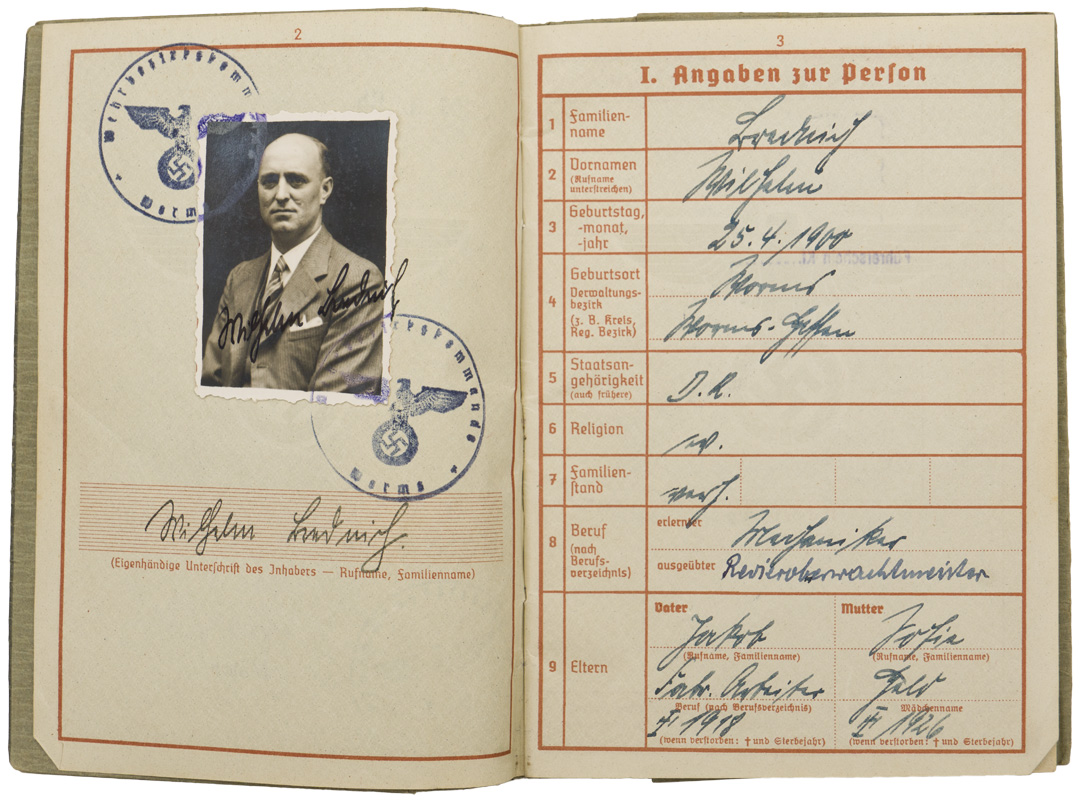 2
Wehrbezirkskomm
Worms
Wilhelm Bredrich
Wehrbezirkskommando
Worms
Wilhelm Bredrich.
(Eigenhändige Unterschrift des Inhabers — Rufname, Familienname)
3
I. Angaben zur Person
1 Familien-
name
Bredrich
2 Vornamen
(Rufname
unterstreichen)
Wilhelm
3 Geburtstag,
-monat,
-jahr
25. 4. 1900
4 Geburtsort
Verwaltungs-
bezirk
(z. B. Kreis,
Reg. Bezirk)
Worms
Worms-Hessen
5 Staatsan-
gehörigkeit
(auch frühere)
D.R.
6 Religion
ev.
7 Familien-
stand
verh.
8 Beruf
(nach
Berufs-
verzeichnis)
erlernter Mechaniker
ausgeübter Revieroberwachtmeister
9 Eltern
Vater
Jakob
(Rufname, Familienname)
Fabr. Arbeiter
Beruf (nach Berufsverzeichnis)
1918
(wenn verstorben: † und Sterbejahr)
Mutter
Sofie
(Rufname, Familienname)
Held
Mädchenname
1926
(wenn verstorben: † und Sterbejahr)